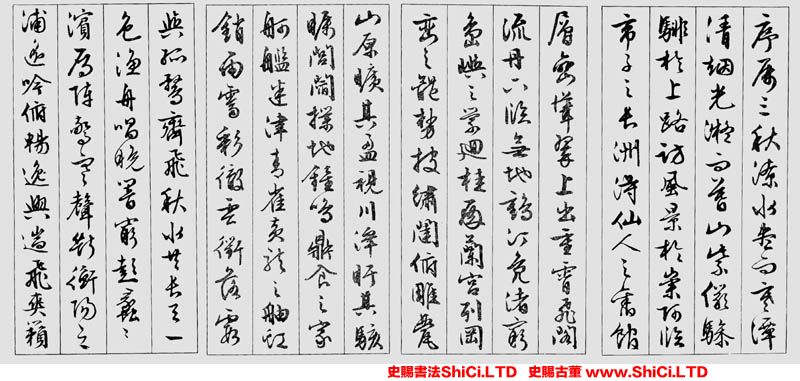 序屬三秋潦水盡而寒潭
清烟光凝而暮山紫儼驂
騑於上路訪風景於崇阿臨
帝子之長洲得仙人之舊館
層巒聳翠上出重霄飛閣
流丹下臨無地鶴汀凫渚窮
島嶼之縈迴桂殿蘭宮列岡
巒之體勢披繡闥俯雕甍
山原曠其盈視川澤盱其駭
矚閭閻撲地鐘鳴鼎食之家
舸艦迷津青雀黃龍之舳虹
銷雨霽彩徹雲衢落霞
與孤鶩齊飛秋水共長天一
色漁舟唱晚響窮彭蠡之
濱雁陣驚寒聲斷衡陽之
浦遙吟俯暢逸興遄飛爽籟
史賜書法ShiCi.LTD 史賜古董 www.ShiCi.LTD